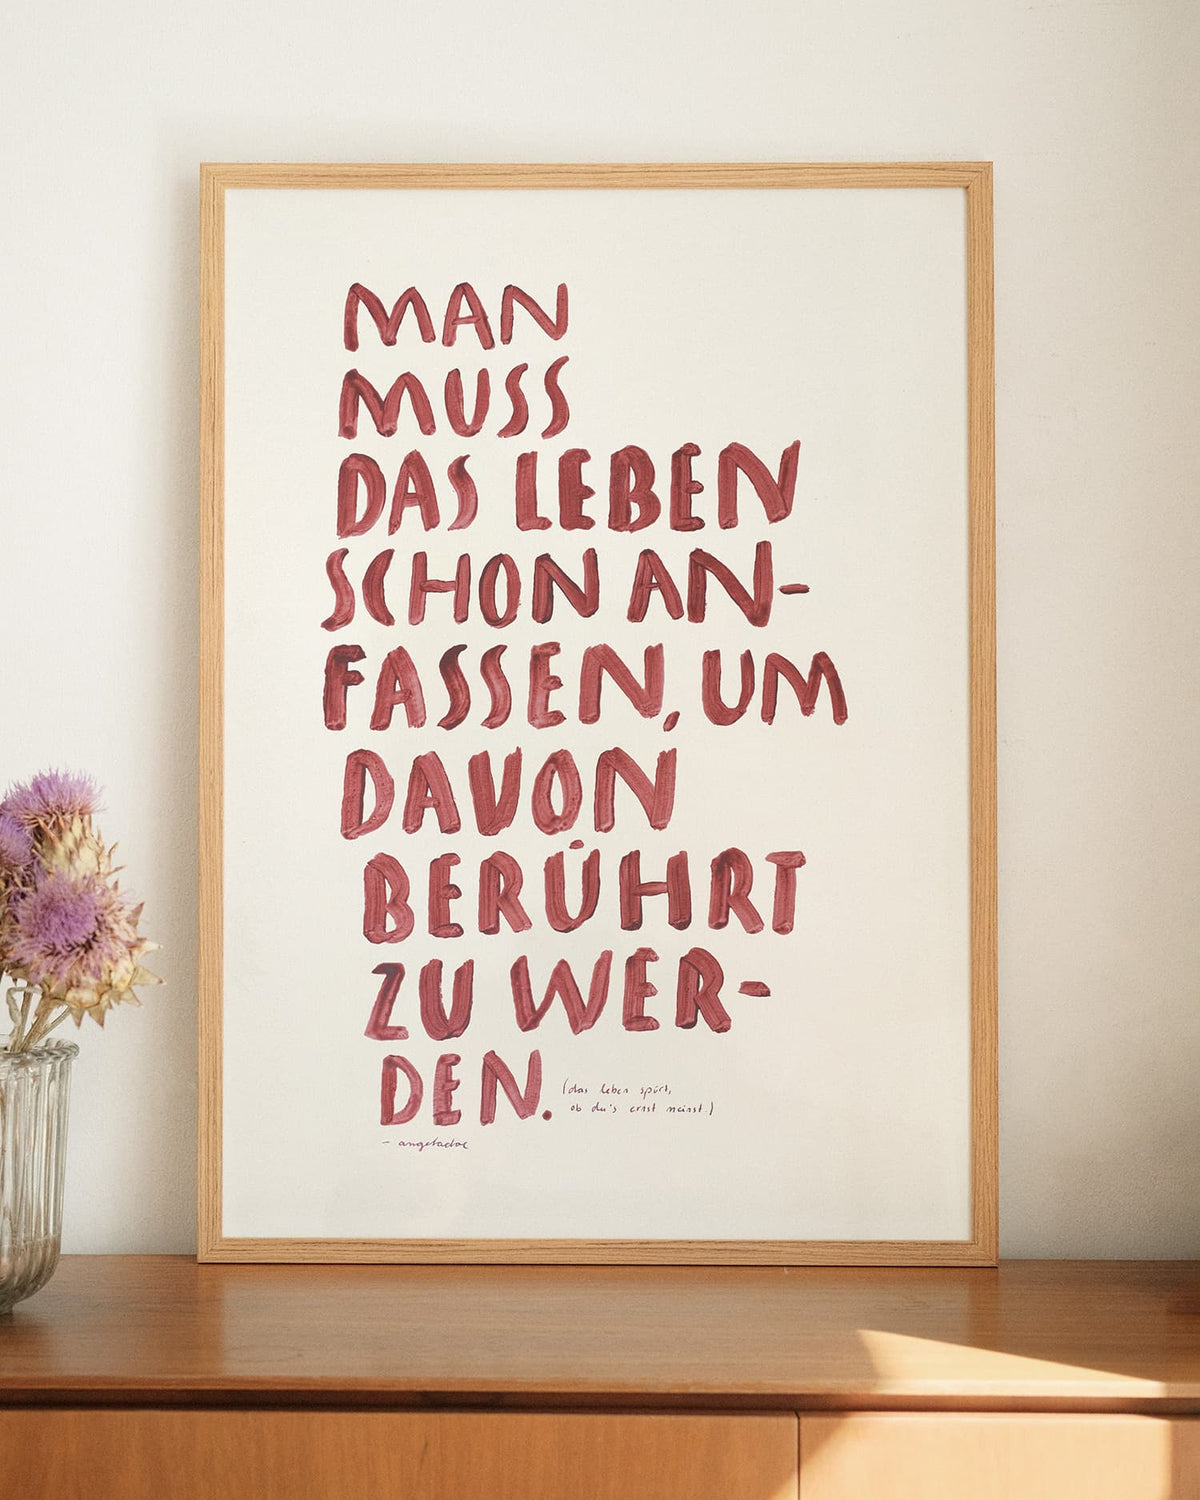 MAN
MUSS
DAS LEBEN
SCHON AN-
FASSEN, UM
DAVON
BERÜHRT
ZU WER-
DEN.
(das leben spürt,
ob du's ernst meinst.)
- angebadoe